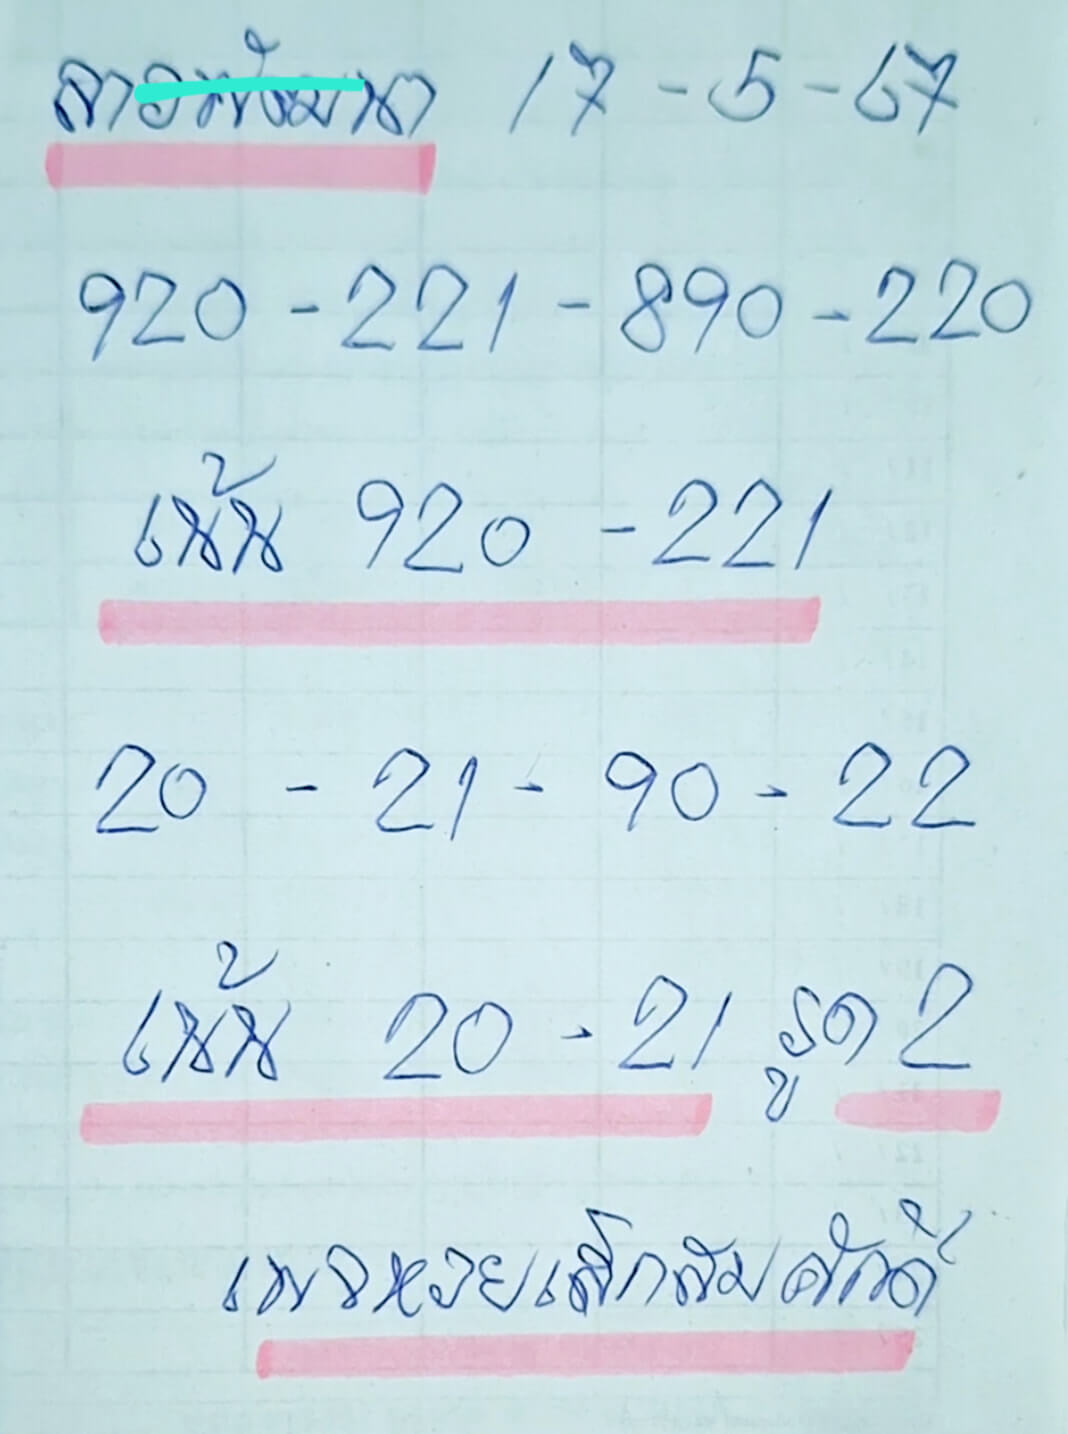 ลาวพัฒนา 17-5-67
920-221-890-220
เน้น 920-221
20-21-90-22
เน้น 20-21 รูด 2
เพจหวยเสี่กสมศักดิ์